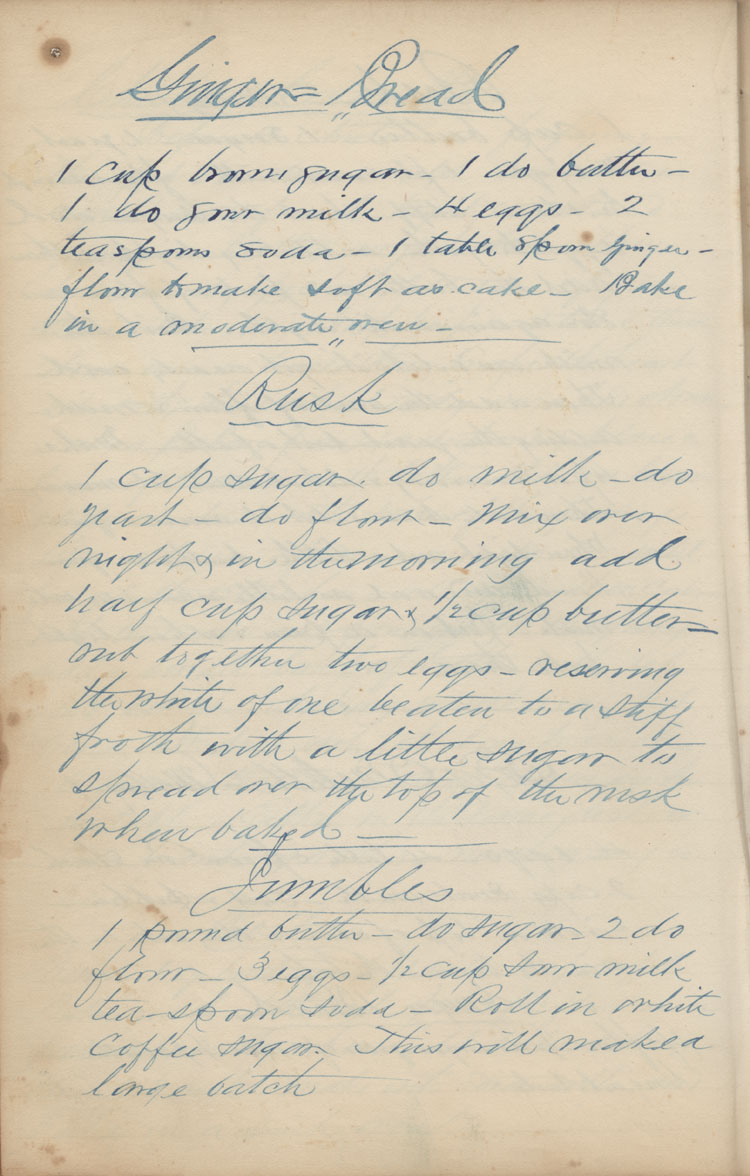 Ginger= Bread
1 cup brown sugar - 1 do butter -
1 do sour milk - 4 eggs - 2
teaspoons soda - 1 table spoon Ginger -
flour to make soft as cake - Bake
in a moderate oven -
Rusk
1 cup sugar. do milk - do
yeast - do flour - Mix over
night & in the morning add
half cup sugar & 1/2 cup butter =
rub together two eggs - reserving
the white of one beaten to a stiff
froth with a little sugar to
spread over the top of the rusk
when baked -
Jumbles
1 pound butter - do sugar - 2 do
flour - 3 eggs - 1/2 cup sour milk
tea-spoon soda - Roll in white
coffee sugar. This will make a
large batch